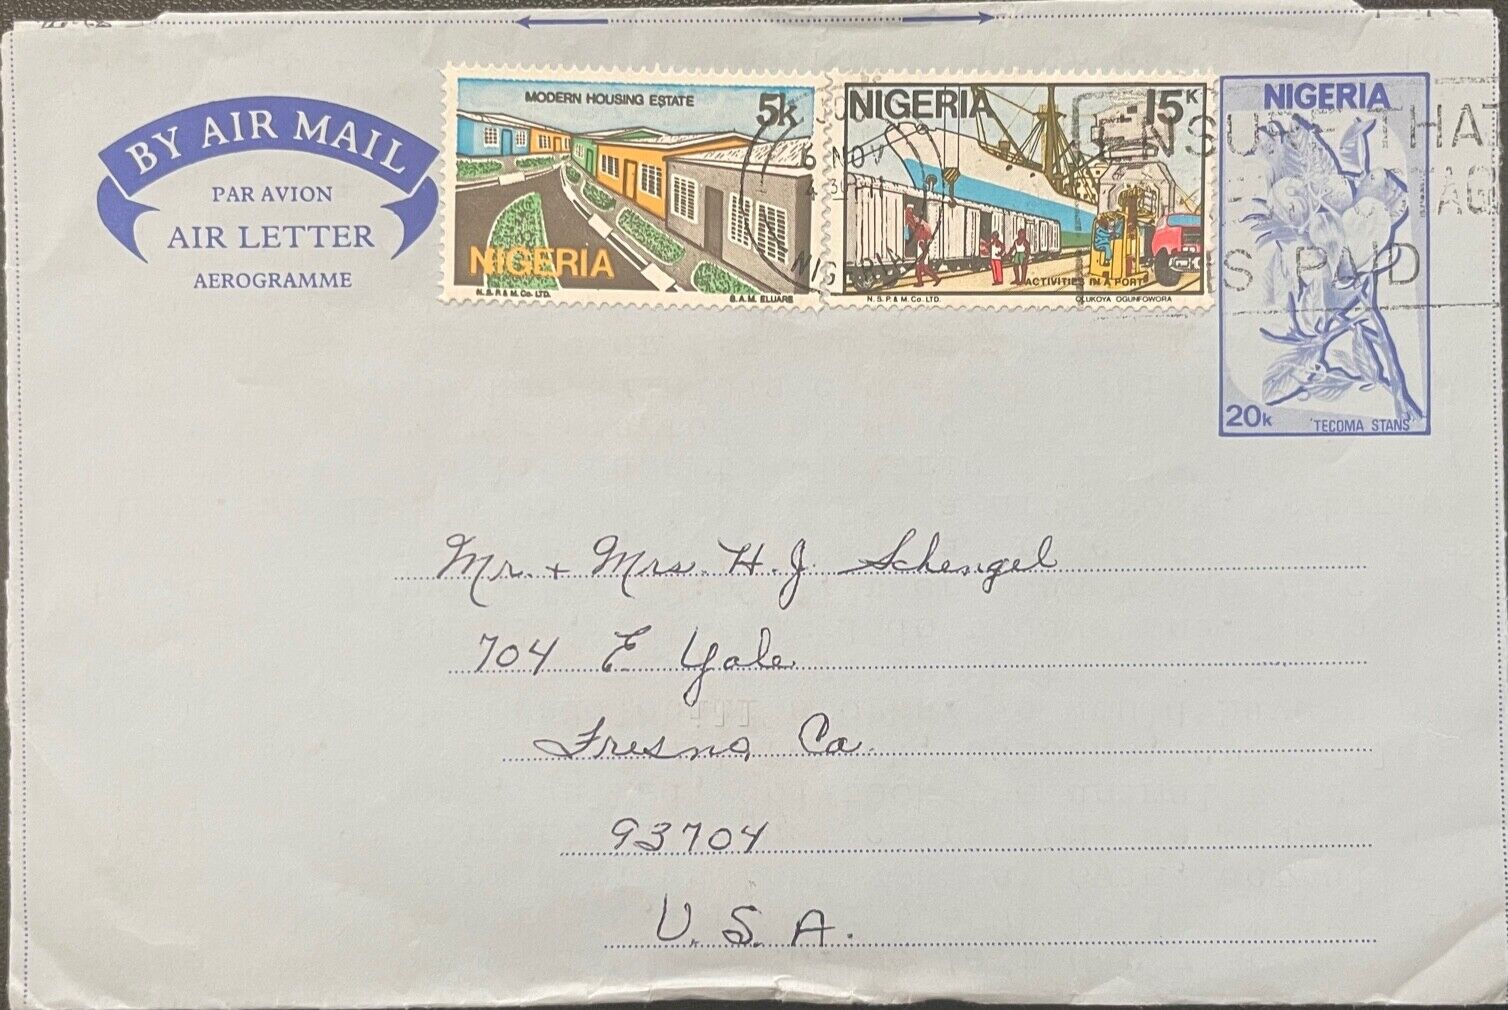 BY AIR MAIL
PAR AVION
AIR LETTER
AEROGRAMME
MODERN HOUSING ESTATE 5k
NIGERIA
N.S.P.& M.Co. LTD. S.A.M. ELUARE
NIGERIA 15K
ACTIVITIES IN A PORT
N.S.P.& M.Co. LTD. OLUKOYA OGUNFOWORA
NIGERIA
20k 'TECOMA STANS'
6 NOV
ENSURE THAT
IS PAID
Mr. + Mrs. H. J. Schengel
704 E Yale
Fresno, Ca.
93704
U.S.A.